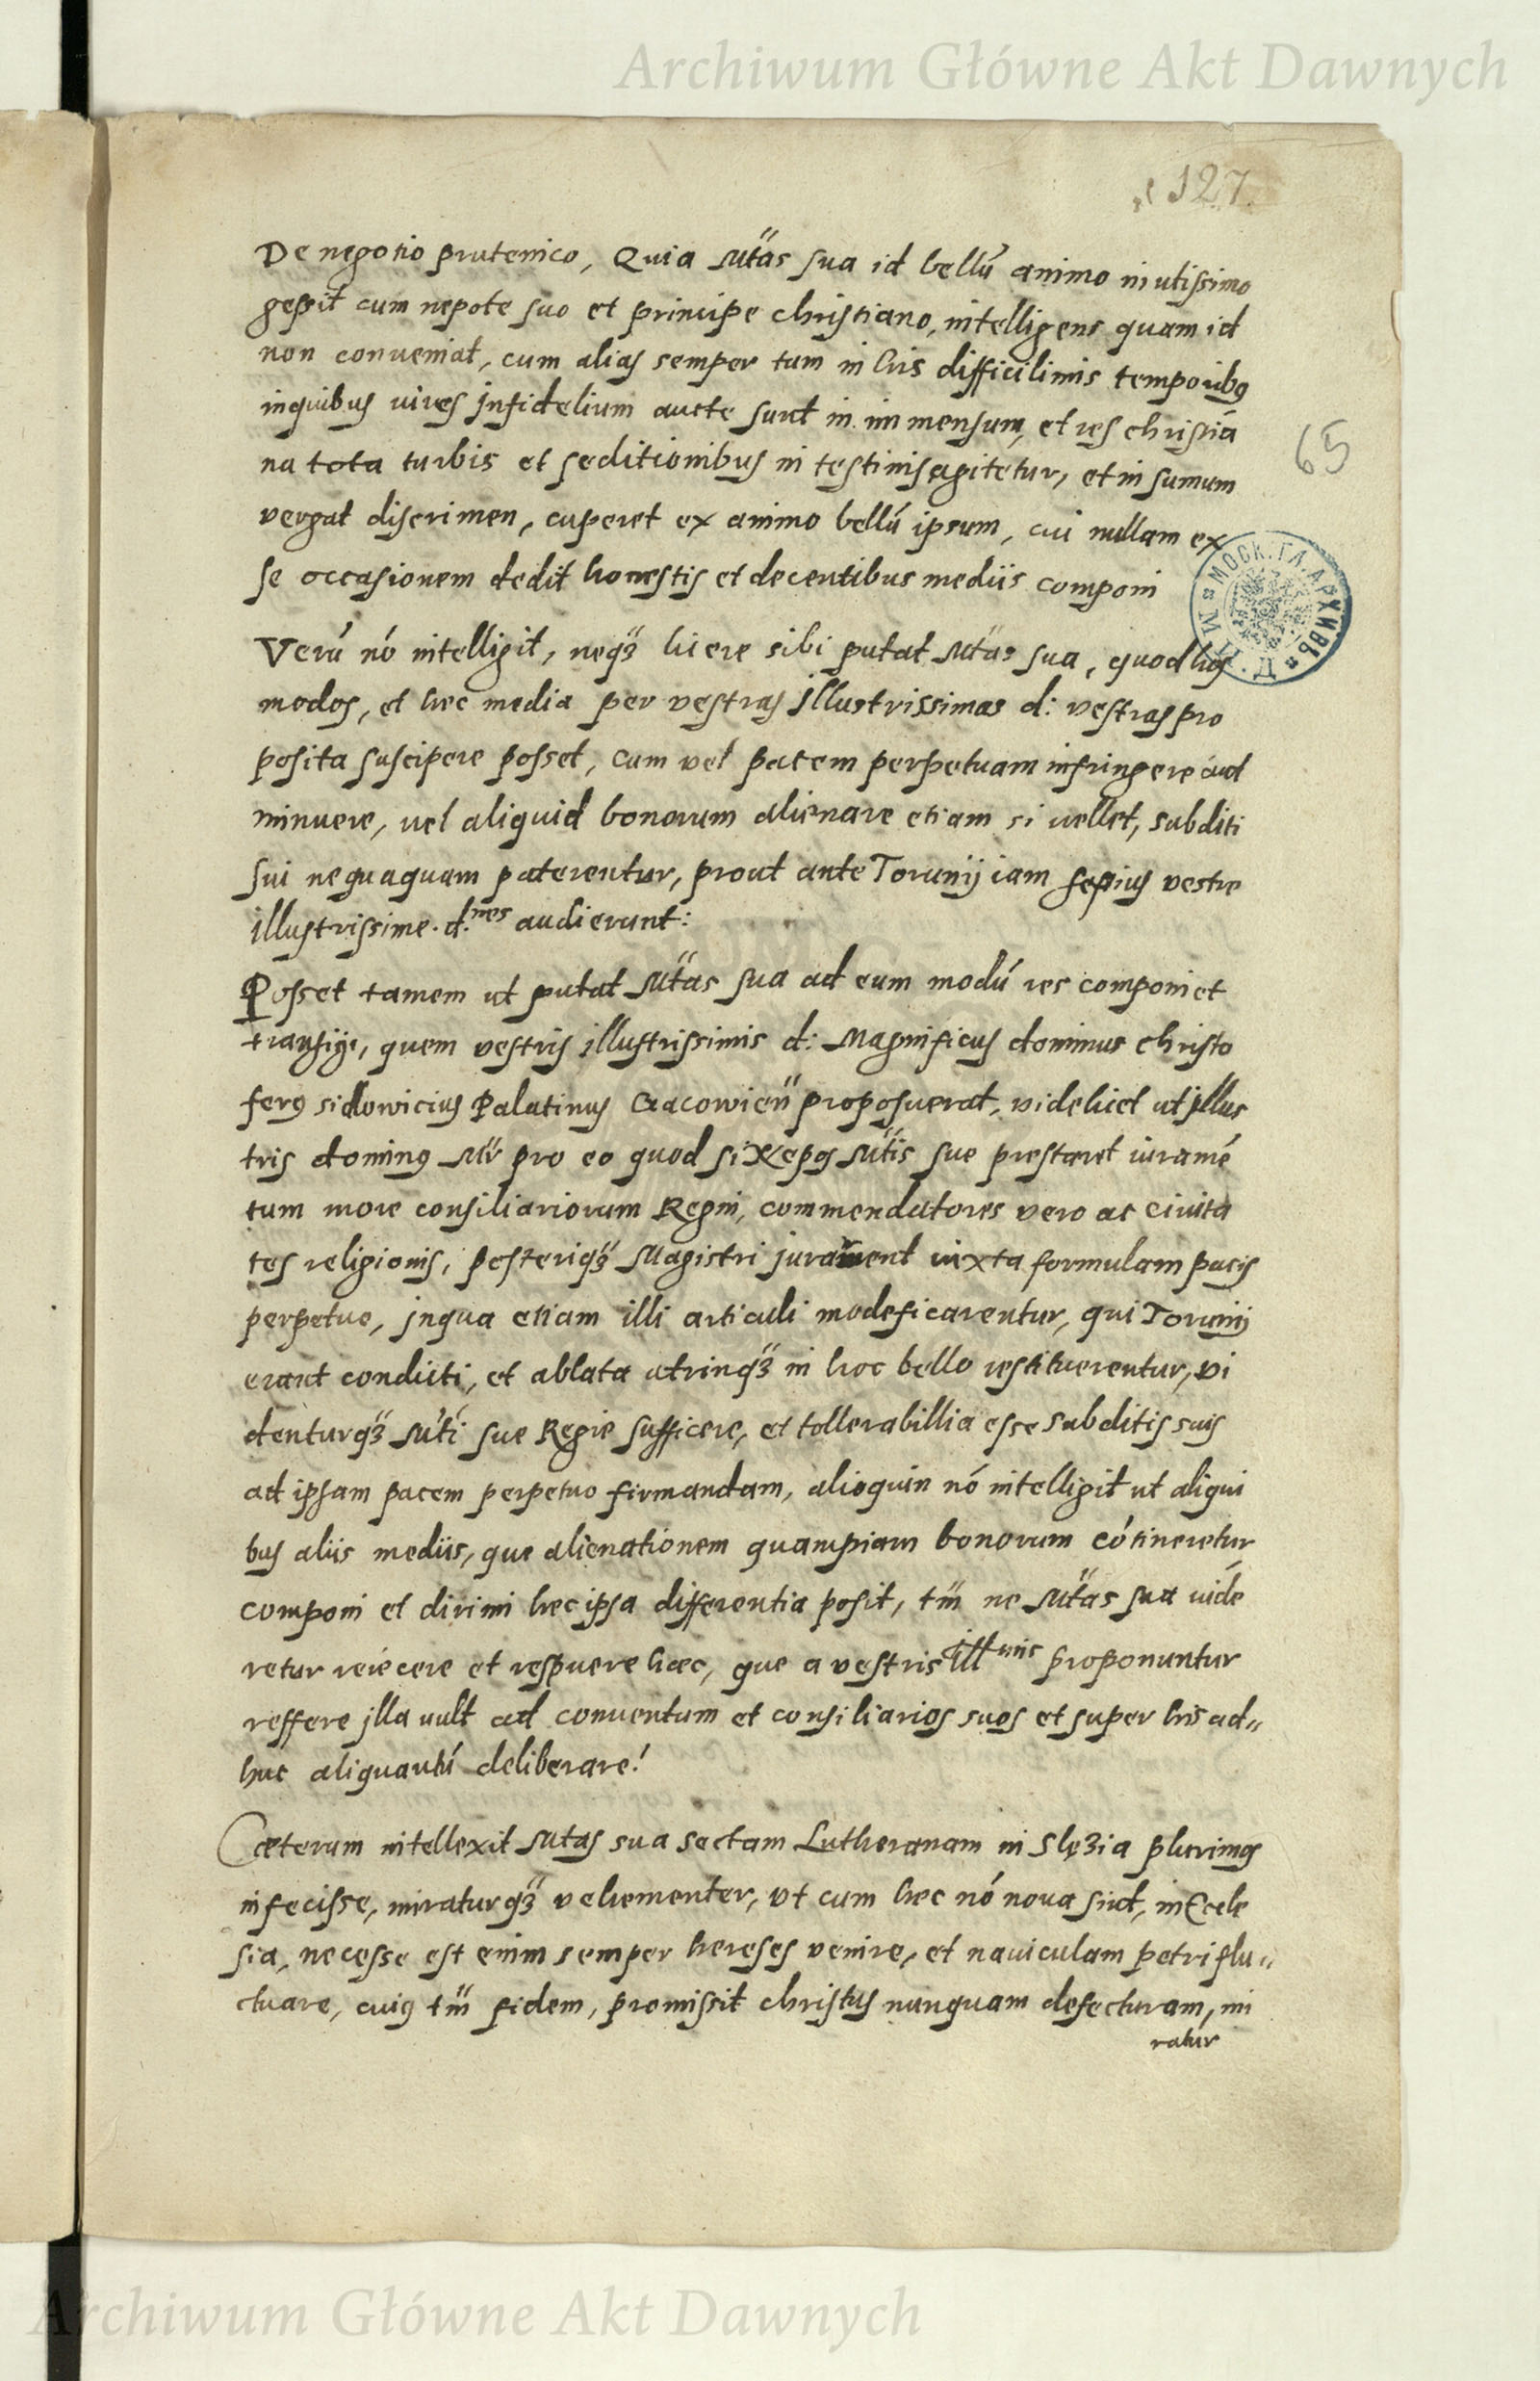 Archiwum Główne Akt Dawnych
127.
De negotio prutenico, Quia Mtas sua id bellū animo inuitissimo
gessit cum nepote suo et principe christiano, intelligens quam id
non conueniat, cum alias semper tum in his difficilimis temporibꝰ
inquibus vires jnfidelium aucte sunt in immensum, et res christiā
na tota turbis et seditionibus intestinis agitetur, et in sumum
vergat discrimen, cuperet ex animo bellū ipsum, cui nullam ex
se occasionem dedit honestis et decentibus mediis componi
65
МОСК. ГЛ. АРХИВЪ
Verū nō intelligit, neqꝫ licere sibi putat Mtas sua, quod hos
modos, et hec media per vestras jllustrissimas d: vestras pro
posita suscipere posset, cum vel pacem perpetuam infringere aud
minuere, vel aliquid bonorum alienare etiam si vellet, subditi
sui nequaquam paterentur, prout ante Torunij iam sepius vestre
jllustrissime. d.nes audierunt:
Posset tamem ut putat Mtas sua ad eum modū res componi et
transigi, quem vestris jllustrissimis d: Magnificus dominus christo
ferꝰ sidlowicius Palatinus Cracowieñ proposuerat, videlicet ut jllus
tris dominꝰ Mr pro eo quod sit epꝰ Mtis sue prestaret iuramē
tum more consiliariorum Regni, commendatores vero ac ciuita
tes religionis, posteriqꝫ Magistri jurament iuxta formulam pacis
perpetue, jnqua etiam illi articuli modeficarentur, qui Torunij
erant condicti, et ablata utrinqꝫ in hoc bello restituerentur, vi
denturqꝫ Mti sue Regie sufficere, et tollerabillia esse subditis suis
ad ipsam pacem perpetuo firmandam, alioquin nō intelligit ut aliqui
bus aliis mediis, que alienationem quampiam bonorum cōtineretur
componi et dirimi hec ipsa differentia posit, tm̄ ne Mtas sua uidē
retur reiecere et respuere haec, que a vestris jllmis proponuntur
reffere jlla vult ad conuentum et consiliarios suos et super his ad„
huc aliquantū deliberare!
Cæterum intellexit Mtas sua sectam Lutheranam in Slęzia plurimos
infecisse, miraturqꝫ vehementer, vt cum hec nō noua sint, in Eccle
sia, necesse est enim semper hereses venire, et nauiculam petri flu„
ctuare, cuiꝰ tm̄ fidem, promissit christus nunquam defecturam, mi
ratur
Archiwum Główne Akt Dawnych